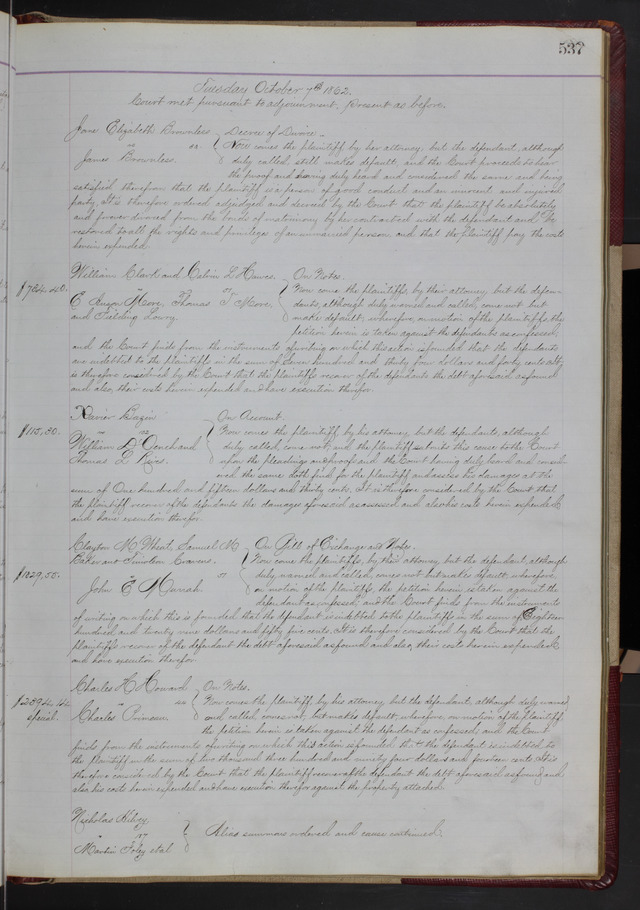 537
Tuesday October 7th 1862.
Court met pursuant to adjournment, present as before.
Jane Elizabeth Brownless
vs
James Brownless.
Decree of Divorce.
Now comes the plaintiff by her attorney, but the defendant, although
duly called still makes default, and the Court proceeds to hear
the proof and having duly heard and considered the same and being
satisfied therefrom that the plaintiff is a person of good conduct and an innocent and injured
party, It is therefore ordered adjudged and decreed by the Court that the plaintiff be absolutely
and forever divorced from the bonds of matrimony by her contracted with the defendant and be
restored to all the rights and privileges of an unmarried person, and that the plaintiff pay the costs
herein expended.
$734.40.
William Clark and Calvin L Hawes.
vs
E Anson More, Thomas T More
and Fielding Lowry.
On Notes.
Now come the plaintiffs, by their attorney, but the defen-
dants, although duly named and called, come not but
make default; wherefore, on motion of the plaintiffs, the
petition herein is taken against the defendants as confessed,
and the Court finds from the instruments of writing on which this action is founded that the defendants
are indebted to the plaintiffs in the sum of Seven hundred and thirty four dollars and forty cents. It
is therefore considered by the Court that the plaintiffs recover of the defendants the debt aforesaid as found
and also, their costs herein expended and have execution therefor.
$115.30.
Xavier
vs
William D and
Thomas L
On Account.
Now comes the plaintiff by his attorney, but the defendants, although
duly called, come not, and the plaintiff submits this cause to the Court
upon the pleadings and proof and the Court having duly heard and consid-
ered the same doth find for the plaintiff and assess his damages at the
sum of One hundred and fifteen dollars and thirty cents. It is therefore considered by the Court that
the plaintiff recover of the defendants the damages aforesaid as assessed, and also his costs herein expended
and have execution therefor.
$1829.55.
Clayton M Samuel M
Baker and
vs
John E Murrah
On Bill of Exchange and Notes.
Now come the plaintiffs, by their attorney, but the defendant, although
duly named and called, comes not but makes default; wherefore,
on motion of the plaintiffs the petition herein is taken against the
defendant as confessed, and the Court finds from the instruments
of writing on which this is founded, that the defendant is indebted to the plaintiffs in the sum of Eighteen
hundred and twenty nine dollars and fifty five cents. It is therefore considered by the Court that the
plaintiffs recover of the defendant the debt aforesaid as found and also, their costs herein expended
and have execution therefor.
$2394.14.
special.
Charles H Howard
vs
Charles Primeau.
On Notes.
Now comes the plaintiff by his attorney, but the defendant, although duly named
and called, comes not, but makes default; wherefore, on motion of the plaintiff,
the petition herein is taken against the defendant as confessed, and the Court
finds from the instruments of writing on which this action is founded that the defendant is indebted to
the plaintiff in the sum of two thousand three hundred and ninety four dollars and fourteen cents. It is
therefore considered by the Court that the plaintiff recover of the defendant the debt aforesaid as found and
also his costs herein expended and have execution therefor against the property attached.
Nicholas
vs
Martin Foley et al
Alias summons ordered and cause continued.